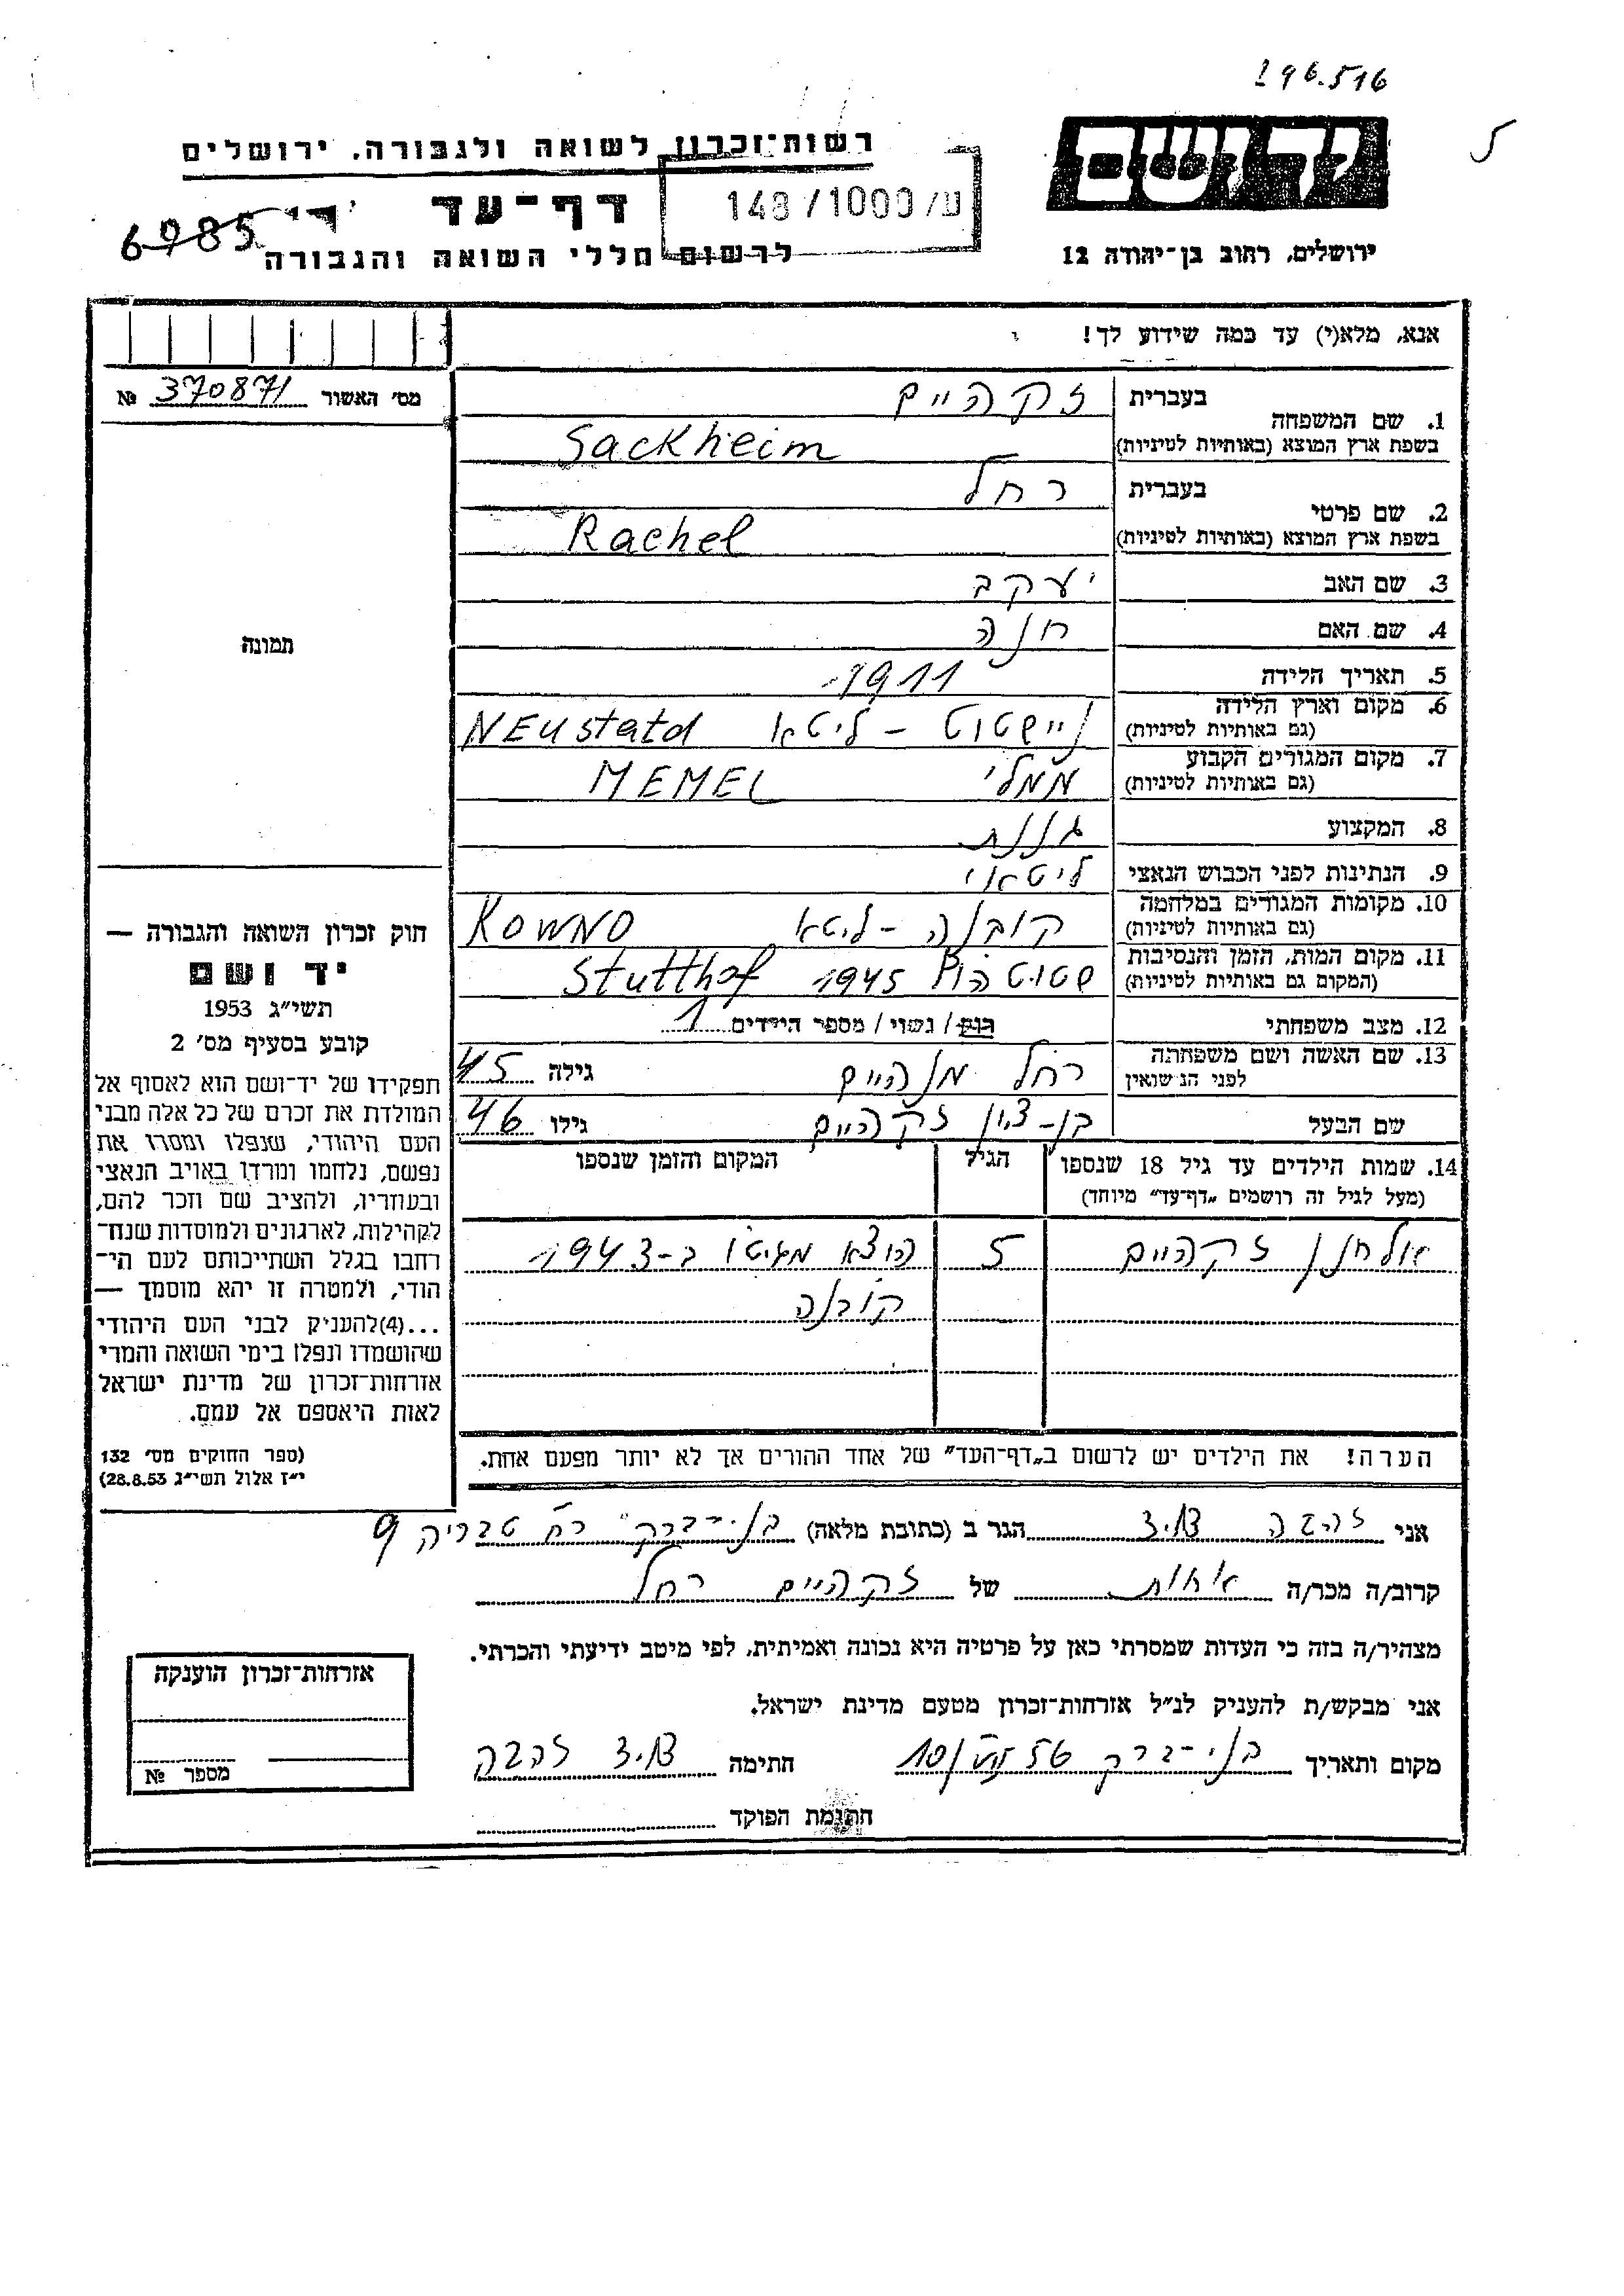 296.516
יד ושם
ירושלים, רחוב בן־יהודה 12
רשות־זכרון לשואה ולגבורה, ירושלים
דף־עד
148/1000/ע
6985
לרשום חללי השואה והגבורה
אנא, מלא(י) עד כמה שידוע לך!
מס׳ האשור 370871 №
תמונה
1. שם המשפחה בעברית זקהיים
בשפת ארץ המוצא (באותיות לטיניות) Sackheim
2. שם פרטי בעברית רחל
בשפת ארץ המוצא (באותיות לטיניות) Rachel
3. שם האב יעקב
4. שם האם חנה
5. תאריך הלידה 1911
6. מקום וארץ הלידה (גם באותיות לטיניות) ניישטוט – ליטא NEustatd
7. מקום המגורים הקבוע (גם באותיות לטיניות) ממלי MEMEL
8. המקצוע גננת
9. הנתינות לפני הכבוש הנאצי ליטאי
10. מקומות המגורים במלחמה (גם באותיות לטיניות) קובנה – ליטא KOWNO
11. מקום המות, הזמן והנסיבות (המקום גם באותיות לטיניות) שטוטהוף 1945 Stutthof
12. מצב משפחתי רוק / נשוי / מספר הילדים 1
13. שם האשה ושם משפחתה לפני הנשואין רחל מנהיים גילה 45
שם הבעל בן־ציון זקהיים גילו 46
14. שמות הילדים עד גיל 18 שנספו הגיל המקום והזמן שנספו
(מעל לגיל זה רושמים „דף־עד״ מיוחד)
אלחנן זקהיים 5 הוצא מגיטו ב–1943
קובנה
הערה! את הילדים יש לרשום ב„דף־העד״ של אחד ההורים אך לא יותר מפעם אחת.
חוק זכרון השואה והגבורה —
יד ושם
תשי״ג 1953
קובע בסעיף מס׳ 2
תפקידו של יד־ושם הוא לאסוף אל
המולדת את זכרם של כל אלה מבני
העם היהודי, שנפלו ומסרו את
נפשם, נלחמו ומרדו באויב הנאצי
ובעוזריו, ולהציב שם וזכר להם,
לקהילות, לארגונים ולמוסדות שנח־
רבו בגלל השתייכותם לעם הי־
הודי, ולמטרה זו יהא מוסמך —
...(4)להעניק לבני העם היהודי
שהושמדו ונפלו בימי השואה והמרי
אזרחות־זכרון של מדינת ישראל
לאות היאספם אל עמם.
(ספר החוקים מס׳ 132
י״ז אלול תשי״ג 28.8.53)
אני זהבה הגר ב (כתובת מלאה) בני־ברק רח טבריה 9
קרוב/ה מכר/ה אחות של זקהיים רחל
מצהיר/ה בזה כי העדות שמסרתי כאן על פרטיה היא נכונה ואמיתית, לפי מיטב ידיעתי והכרתי.
אני מבקש/ת להעניק לנ״ל אזרחות־זכרון מטעם מדינת ישראל.
מקום ותאריך בני־ברק 10/VII 56 חתימה זהבה
חתימת הפוקד
אזרחות־זכרון הוענקה
מספר №